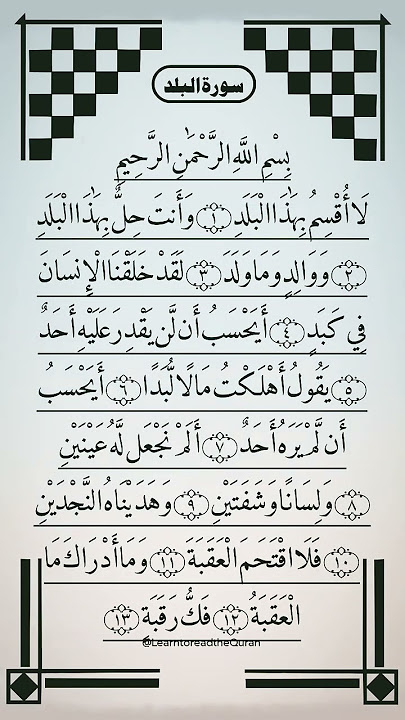 سورة البلد
بِسْمِ اللَّهِ الرَّحْمَٰنِ الرَّحِيمِ
لَا أُقْسِمُ بِهَٰذَا الْبَلَدِ ﴿١﴾ وَأَنتَ حِلٌّ بِهَٰذَا الْبَلَدِ
﴿٢﴾ وَوَالِدٍ وَمَا وَلَدَ ﴿٣﴾ لَقَدْ خَلَقْنَا الْإِنسَانَ
فِي كَبَدٍ ﴿٤﴾ أَيَحْسَبُ أَن لَّن يَقْدِرَ عَلَيْهِ أَحَدٌ
﴿٥﴾ يَقُولُ أَهْلَكْتُ مَالًا لُّبَدًا ﴿٦﴾ أَيَحْسَبُ
أَن لَّمْ يَرَهُ أَحَدٌ ﴿٧﴾ أَلَمْ نَجْعَل لَّهُ عَيْنَيْنِ
﴿٨﴾ وَلِسَانًا وَشَفَتَيْنِ ﴿٩﴾ وَهَدَيْنَاهُ النَّجْدَيْنِ
﴿١٠﴾ فَلَا اقْتَحَمَ الْعَقَبَةَ ﴿١١﴾ وَمَا أَدْرَاكَ مَا
الْعَقَبَةُ ﴿١٢﴾ فَكُّ رَقَبَةٍ ﴿١٣﴾
@LearntoreadtheQuran